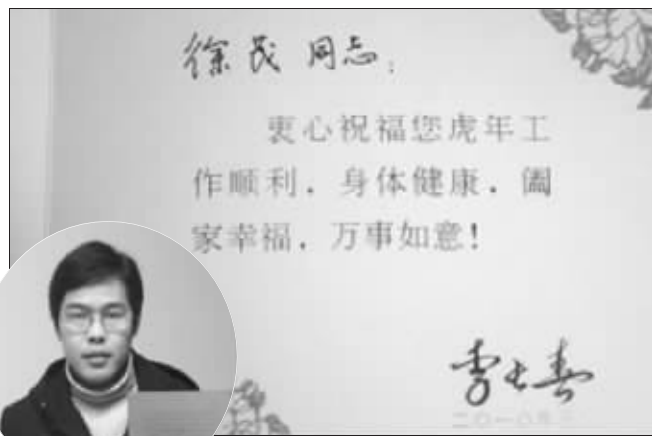 徐茂同志：
衷心祝福您虎年工
作顺利，身体健康，阖
家幸福，万事如意！
李长春
二〇一〇年